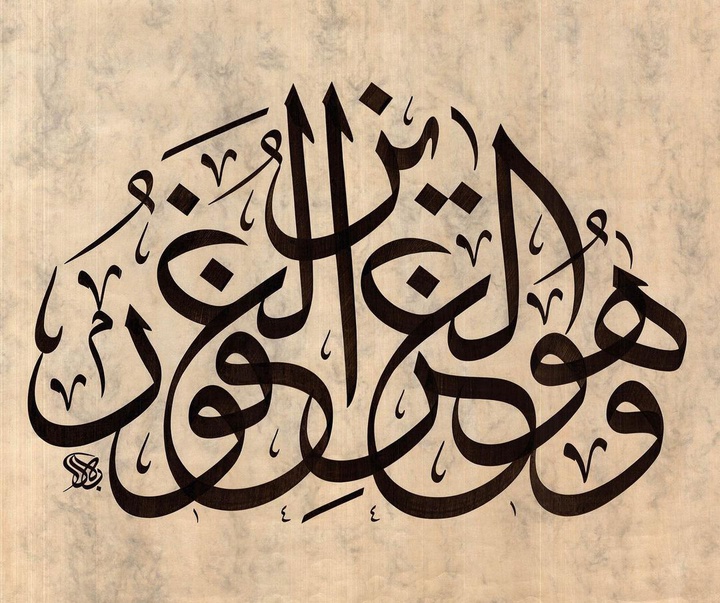 وَهُوَ الْعَزِيزُ الْغَفُورُ